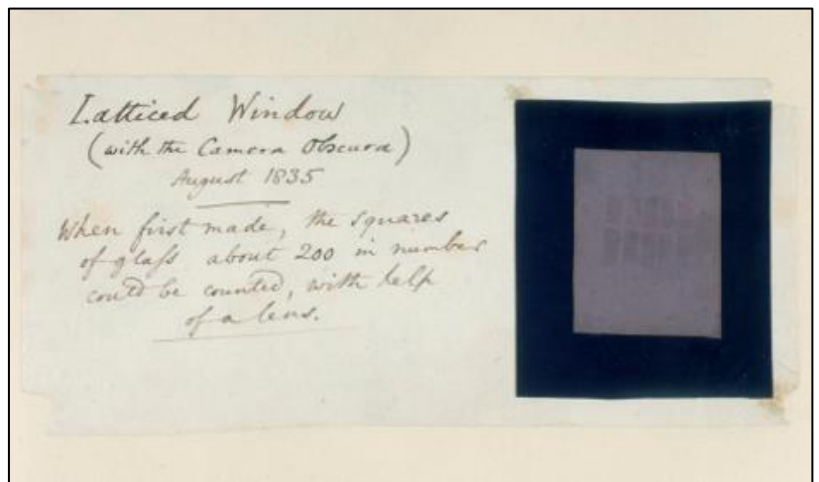 Latticed Window
(with the Camera Obscura)
August 1835
When first made, the squares
of glaſs about 200 in number
could be counted, with help
of a lens.